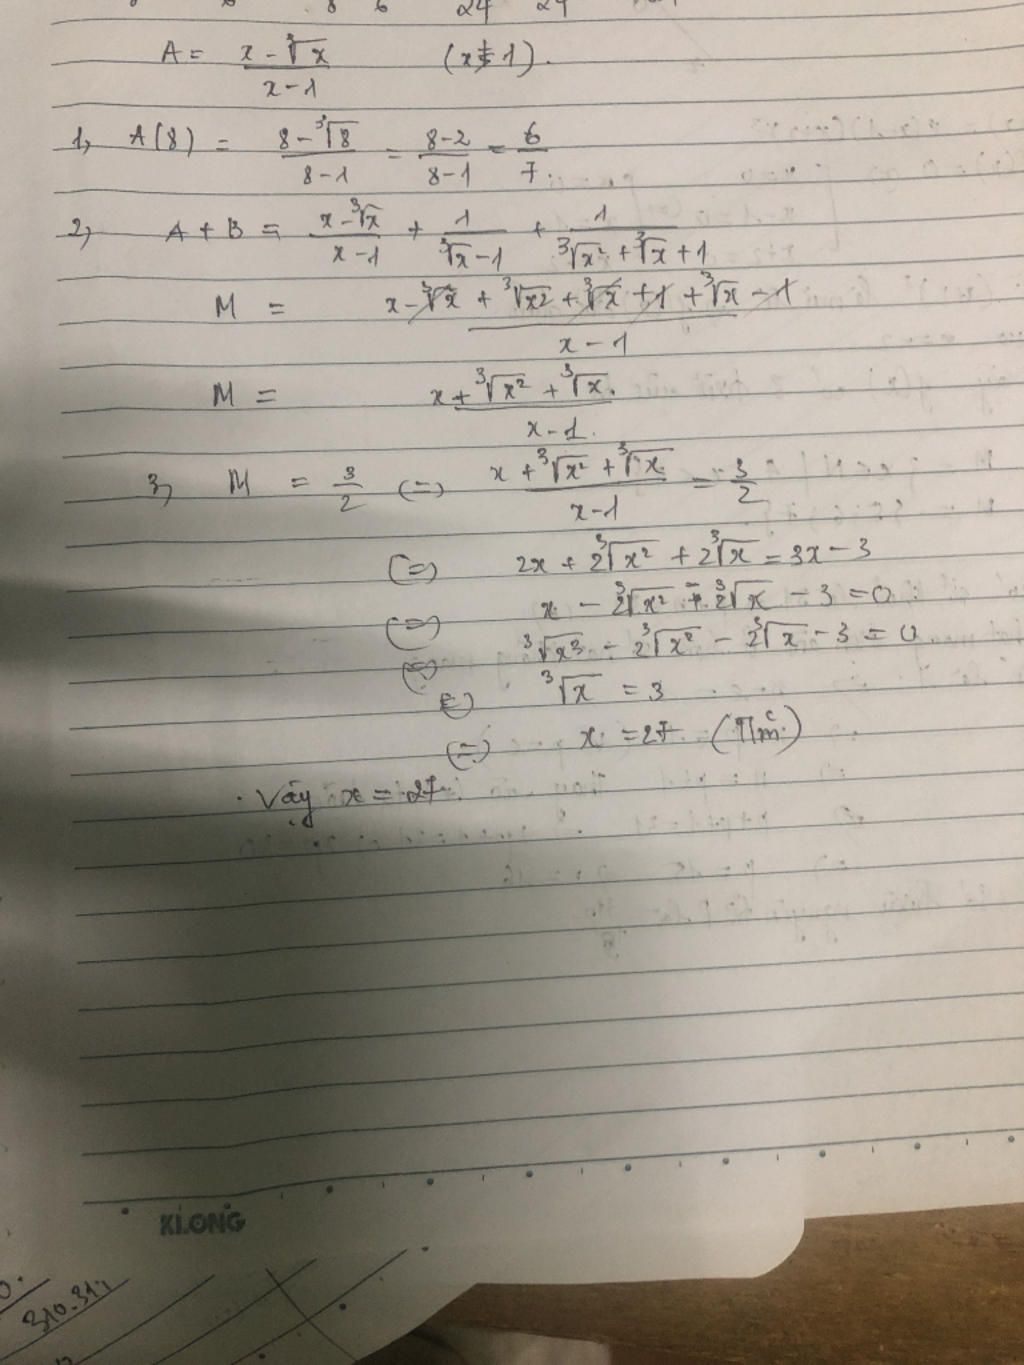 8 6 24 24
A = \frac{x - \sqrt[3]{x}}{x - 1} (x ≠ 1).
1, A(8) = \frac{8 - \sqrt[3]{8}}{8 - 1} = \frac{8 - 2}{8 - 1} = \frac{6}{7}.
2, A + B = \frac{x - \sqrt[3]{x}}{x - 1} + \frac{1}{\sqrt[3]{x} - 1} + \frac{1}{\sqrt[3]{x^2} + \sqrt[3]{x} + 1}
M = \frac{x - \sqrt[3]{x} + \sqrt[3]{x^2} + \sqrt[3]{x} + 1 + \sqrt[3]{x} - 1}{x - 1}
M = \frac{x + \sqrt[3]{x^2} + \sqrt[3]{x}.}{x - 1.}
3, M = \frac{3}{2} (=) \frac{x + \sqrt[3]{x^2} + \sqrt[3]{x}}{x - 1} = \frac{3}{2}
(=) 2x + 2\sqrt[3]{x^2} + 2\sqrt[3]{x} = 3x - 3
(=) x - 2\sqrt[3]{x^2} - 2\sqrt[3]{x} - 3 = 0
(=) \sqrt[3]{x^3} - 2\sqrt[3]{x^2} - 2\sqrt[3]{x} - 3 = 0
(=) \sqrt[3]{x} = 3
(=) x = 27 (Tm.)
Vậy x = 27
KLONG
310.311